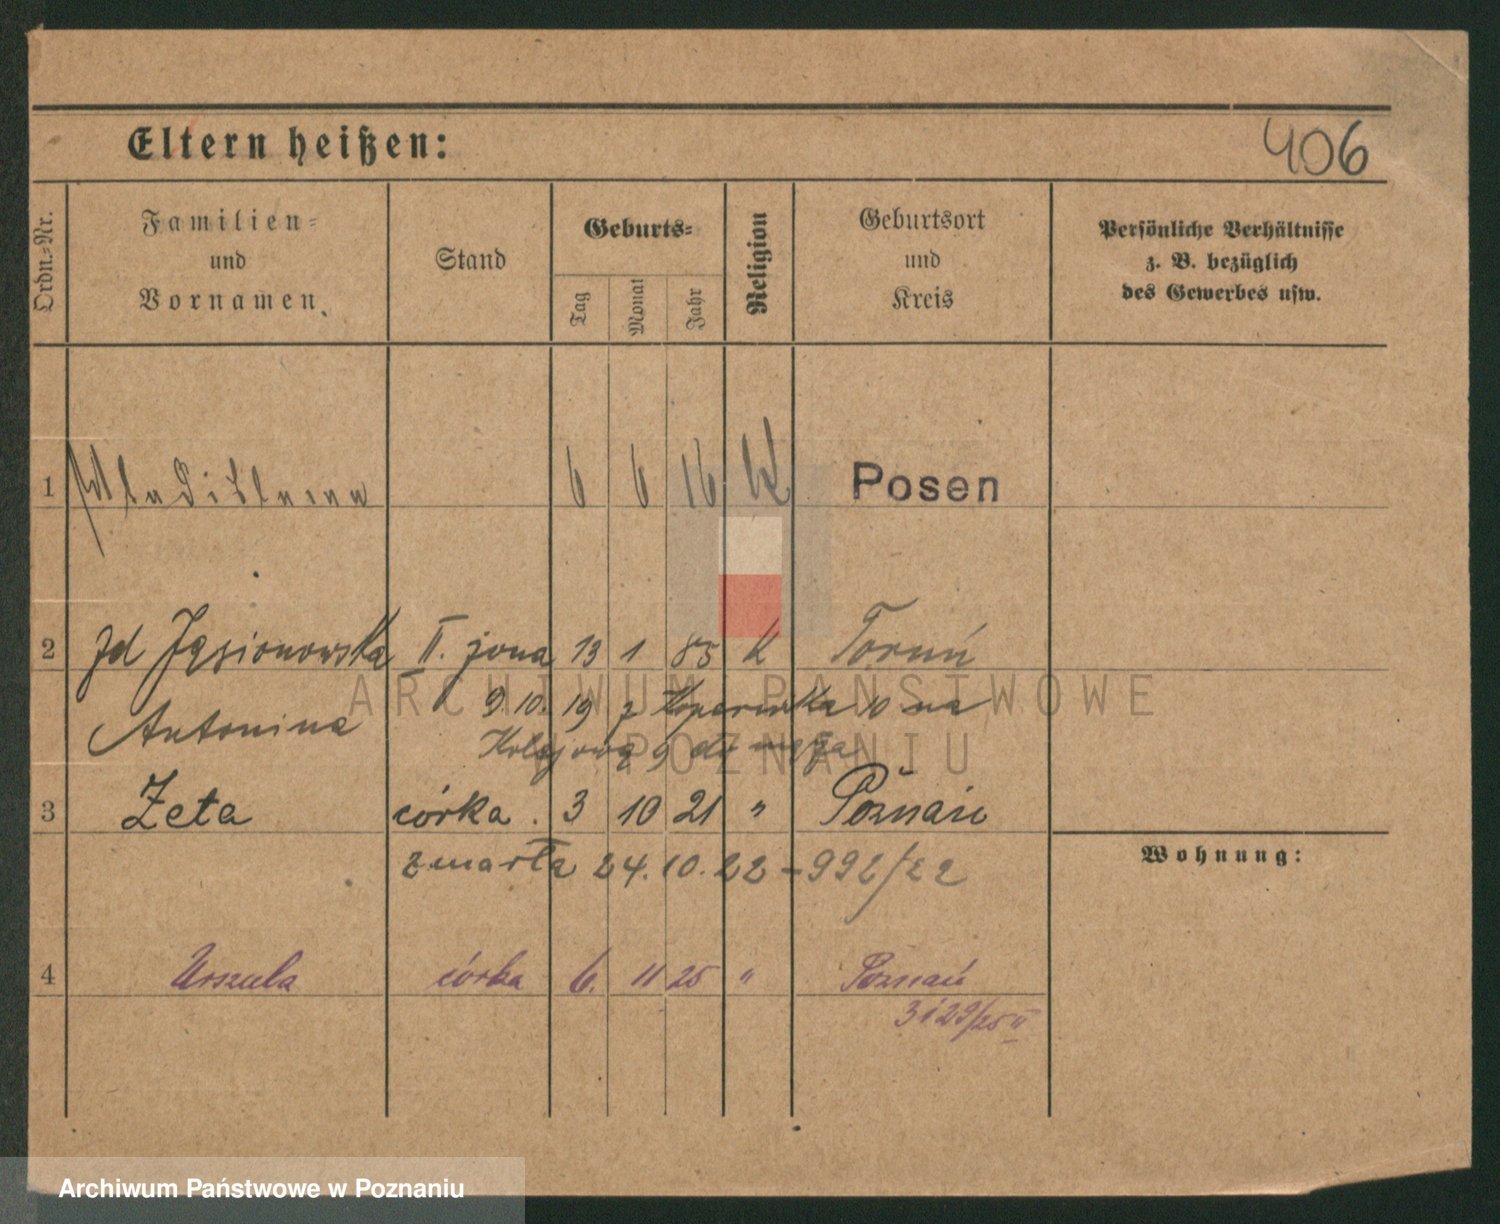 Eltern heißen:
406
Ordn.-Nr.
Familien-
und
Vornamen.
Stand
Geburts-
Tag
Monat
Jahr
Religion
Geburtsort
und
Kreis
Persönliche Verhältnisse
z. B. bezüglich
des Gewerbes usw.
1 6 6 16 K Posen
2 Jąsionowska II. żona 13 1 85 K Toruń
Antonina 9 10. 19 z 10 na
Kolejową 9 do męża
3 Zeta córka. 3 10 21 " Poznań
zmarła 24. 10. 22 - 992/22
Wohnung:
4 Urszula córka 6. 11 25 " Poznań
3129/25 II
ARCHIWUM PAŃSTWOWE
W POZNANIU
Archiwum Państwowe w Poznaniu